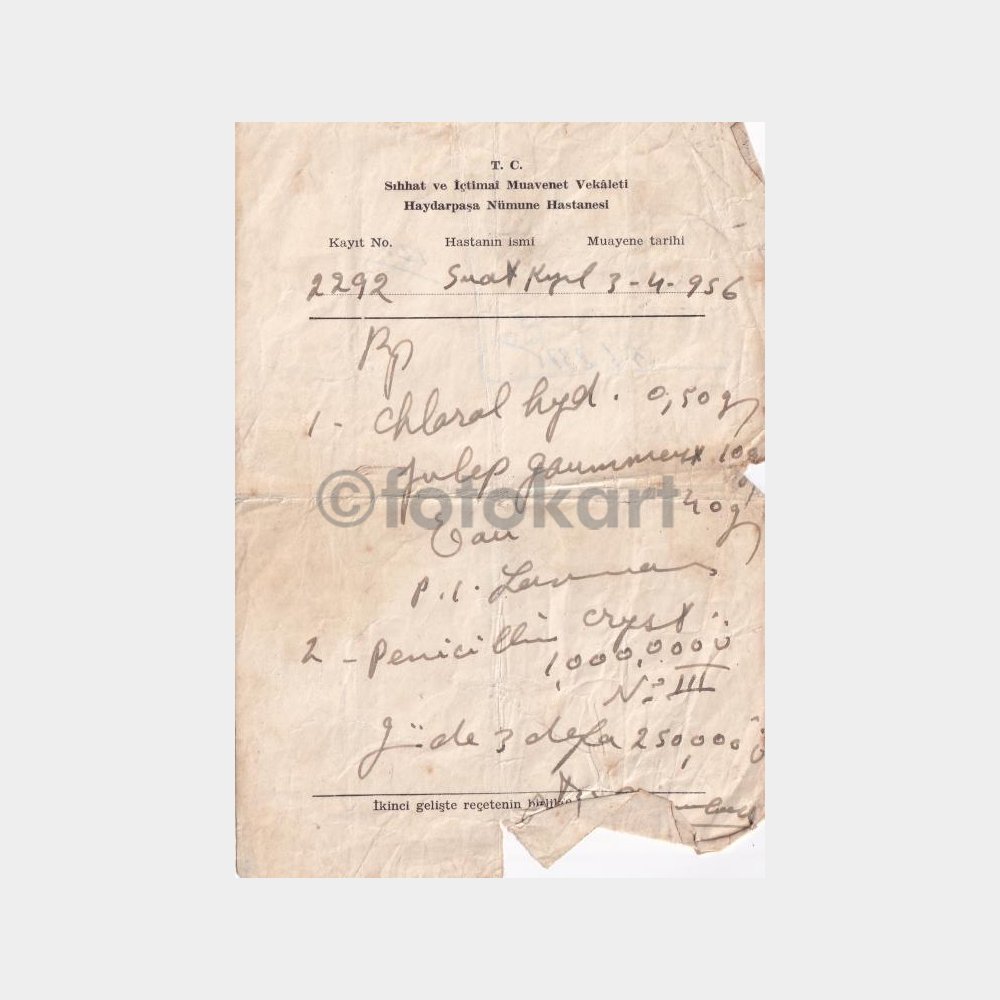 T. C.
Sıhhat ve İçtimaî Muavenet Vekâleti
Haydarpaşa Nümune Hastanesi
Kayıt No. Hastanın ismi Muayene tarihi
2292 Suat 3-4-956
Rp
1 - Chloral hyd. 0,50 g
Julep gommeux 10 g
Eau 40 g
P.1. Lavman
2 - Penicillin cryst.
1,000,000 Ü
No III
Günde 3 defa 250,000 Ü
İkinci gelişte reçetenin
©fotokart